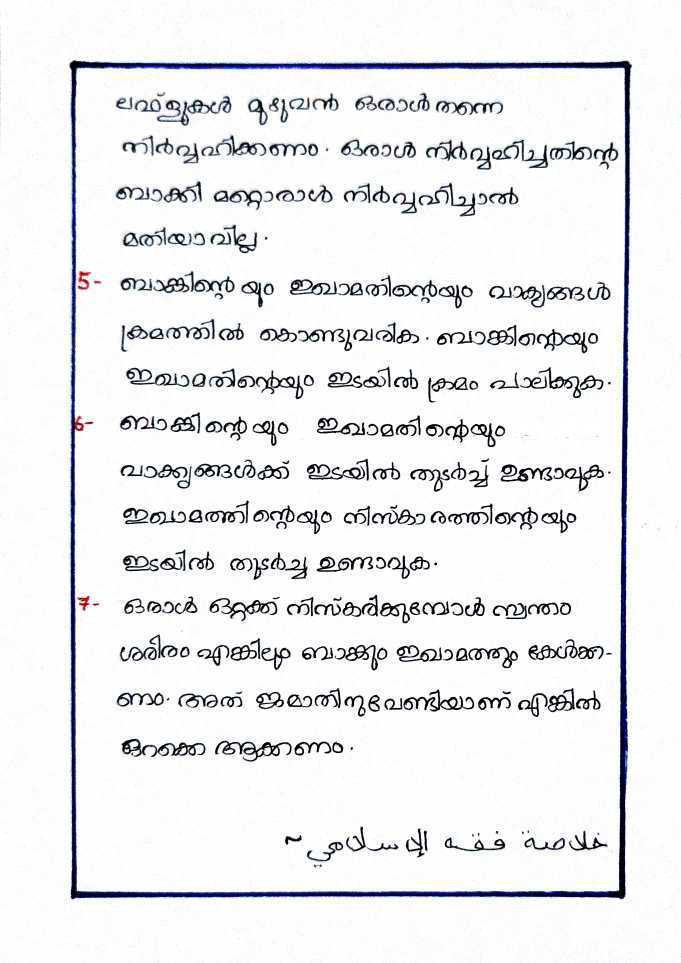 ലഫ്ളുകൾ മുഴുവൻ ഒരാൾ തന്നെ
നിർവ്വഹിക്കണം. ഒരാൾ നിർവ്വഹിച്ചതിന്റെ
ബാക്കി മറ്റൊരാൾ നിർവ്വഹിച്ചാൽ
മതിയാവില്ല.
5- ബാങ്കിന്റെയും ഇഖാമതിന്റെയും വാക്യങ്ങൾ
ക്രമത്തിൽ കൊണ്ടുവരിക. ബാങ്കിന്റെയും
ഇഖാമതിന്റെയും ഇടയിൽ ക്രമം പാലിക്കുക.
6- ബാങ്കിന്റെയും ഇഖാമതിന്റെയും
വാക്യങ്ങൾക്ക് ഇടയിൽ തുടർച്ച് ഉണ്ടാവുക.
ഇഖാമത്തിന്റെയും നിസ്കാരത്തിന്റെയും
ഇടയിൽ തുടർച്ച ഉണ്ടാവുക.
7- ഒരാൾ ഒറ്റക്ക് നിസ്കരിക്കുമ്പോൾ സ്വന്തം
ശരീരം എങ്കിലും ബാങ്കും ഇഖാമത്തും കേൾക്ക-
ണം. അത് ജമാതിനുവേണ്ടിയാണ് എങ്കിൽ
ഉറക്കെ ആക്കണം.
خلاصة فقه الإسلامي~